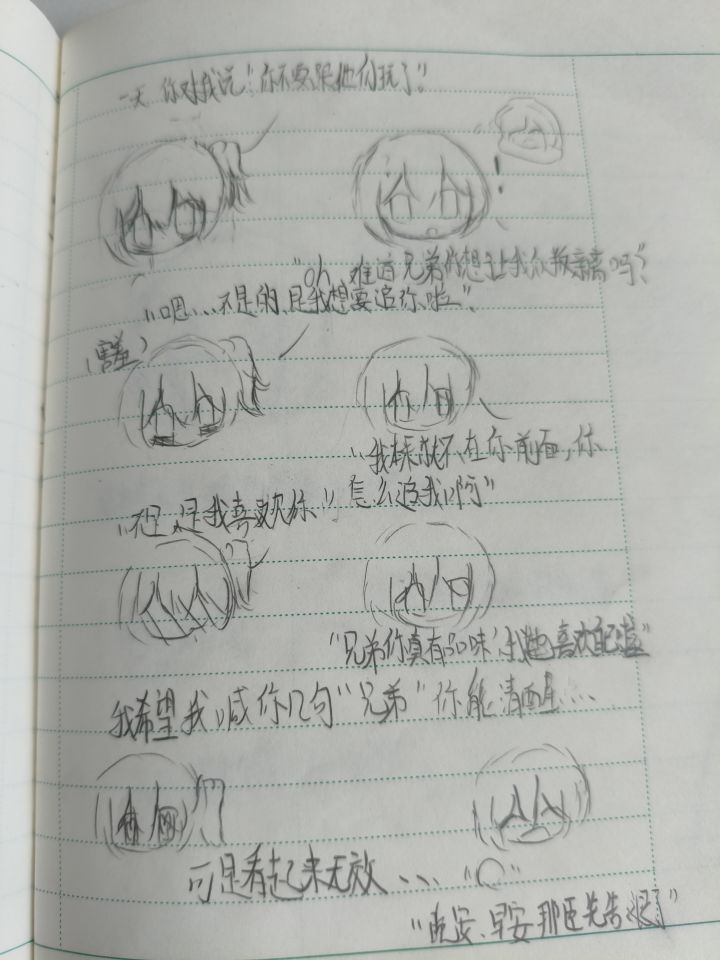 一天 你对我说"你不要跟他们玩了"
"oh 难道兄弟你想让我众叛亲离吗?"
"嗯...不是的,是我想要追你啦"
(害羞)
"我本来就不在你前面,你
怎么追我啊"
"不是,是我喜欢你"
"兄弟你真有品味,我也喜欢自己"
我希望我喊你几句"兄弟"你能清醒...
可是看起来无效...
"晚安、早安 那臣先告退了"